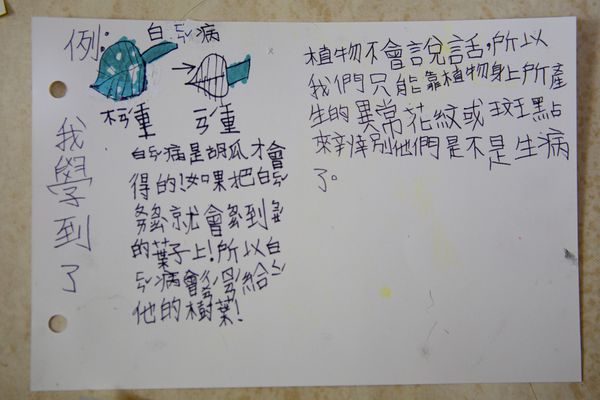 例:
白ㄈㄣˇ病
重
重
我學到了
白ㄈㄣˇ病是胡瓜才會
得的!如果把白
就會到
的葉子上!所以白
病會給
他的樹葉!
植物不會說話,所以
我們只能靠植物身上所產
生的異常花紋或斑點
來別他們是不是生病
了。